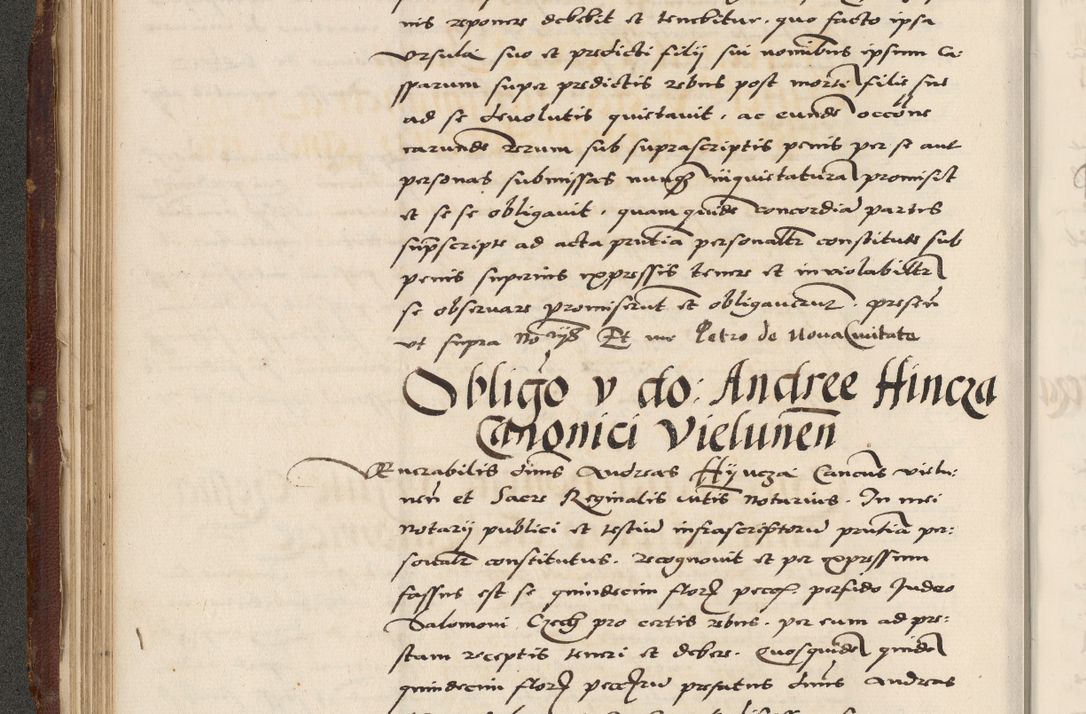 nis reponere debebit et tenebitur. quo facto ipsa
Ursula suo et predicti filij sui nominibus ipsum Ca-
sparum super predictis rebus post mortē filie sue
ad se devolutis quietavit. ac eundē occōne
earundē rerum sub suprascriptis penis per se aut
personas submissas nunq̄ inquietaturā promisit
et se se obligavit. quam quidē concordiā partes
sup̄scripte ad acta pn̄tia personalr̄ constitute sub
penis superius expressis tenere et inviolabilr̄
se observare promiserūt et obligaverūt. presen̄
ut supra Et me Petro de Nova Civitate
Obligō v do: Andree Hincza
Canonici Vielunen̄
Venerabilis dn̄us Andreas Hyncza Canc̄us vielu-
nen̄ et Sacre Reginalis notarius. In mei
notarij publici et testiū infrascriptorū pn̄tia per-
sonalr̄ constitutus. recognovit et per expressum
fassus est se quindecim flor̄ pecc̄ perfido Judeo
Salomoni Czech pro certis rebus. per eum ad pre-
stum receptis teneri et debere. Quosquidē quidē
quindecim flor̄ prefatus dn̄us Andreas